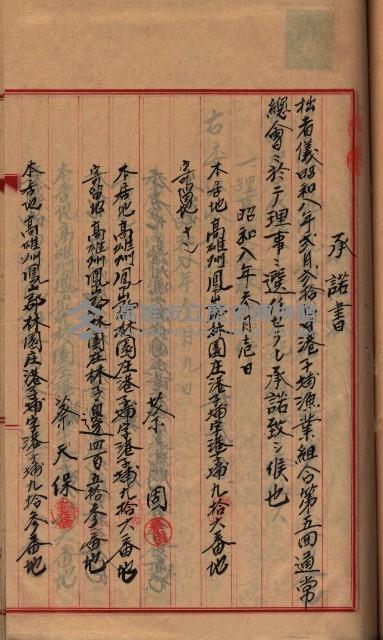 承諾書
拙者儀昭和八年弐月弐拾日港子埔漁業組合第五回通常
總會ニ於テ理事ニ選任セラレ承諾致シ候也
昭和八年参月壱日
本居地高雄州鳳山郡林園庄港子埔字港子埔九拾六番地
寄留地ナシ
蔡周
本居地高雄州鳳山郡林園庄港子埔字港子埔九拾六番地
寄留地高雄州鳳山郡林園庄林子邊四百五拾参番地
蔡天保
本居地高雄州鳳山郡林園庄港子埔字港子埔九拾参番地